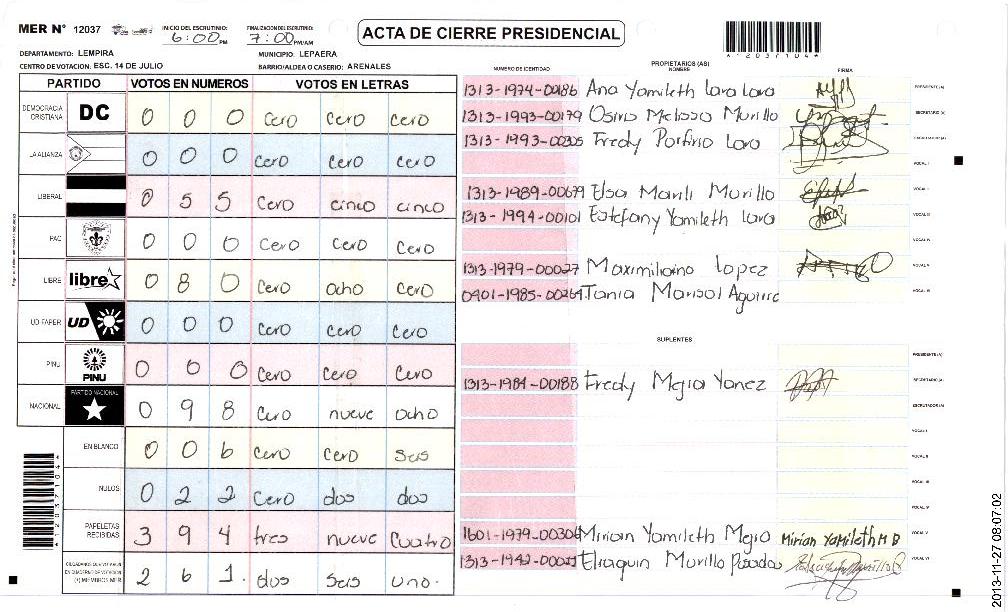 MER N° 12037
INICIO DEL ESCRUTINIO: 6:00 PM
FINALIZACION DEL ESCRUTINIO: 7:00 PM/AM
ACTA DE CIERRE PRESIDENCIAL
*1203710 4*
DEPARTAMENTO: LEMPIRA
MUNICIPIO: LEPAERA
CENTRO DE VOTACION: ESC. 14 DE JULIO
BARRIO/ALDEA O CASERIO: ARENALES
PARTIDO VOTOS EN NUMEROS VOTOS EN LETRAS
DEMOCRACIA CRISTIANA DC 0 0 0 Cero Cero Cero
LA ALIANZA 0 0 0 Cero Cero Cero
LIBERAL 0 5 5 Cero cinco cinco
PAC 0 0 0 Cero Cero Cero
LIBRE libre 0 8 0 Cero ocho Cero
UD FAPER UD 0 0 0 Cero Cero Cero
PINU PINU 0 0 0 Cero Cero Cero
NACIONAL PARTIDO NACIONAL 0 9 8 Cero nueve ocho
EN BLANCO 0 0 6 Cero Cero Seis
NULOS 0 2 2 Cero dos dos
PAPELETAS RECIBIDAS 3 9 4 tres nueve Cuatro
CIUDADANOS QUE VOTARON EN CUADERNO DE VOTACION (+) MIEMBROS MER 2 6 1. dos Seis uno.
NUMERO DE IDENTIDAD PROPIETARIOS (AS) NOMBRE FIRMA
1313-1974-00186 Ana Yamileth Lara Lara PRESIDENTE (A)
1313-1993-00179 Osiris Melissa Murillo SECRETARIO (A)
1313-1993-00305 Fredy Porfirio Lara ESCRUTADOR (A)
VOCAL I
1313-1989-00679 Elsa Marili Murillo VOCAL II
1313-1994-00101 Estefany Yamileth Lara VOCAL III
VOCAL IV
1313-1979-00027 Maximiliano Lopez VOCAL V
0401-1985-00264 Tania Marisol Aguirre VOCAL VI
SUPLENTES
PRESIDENTE (A)
1313-1984-00188 Fredy Mejia Yanez SECRETARIO (A)
ESCRUTADOR (A)
VOCAL I
VOCAL II
VOCAL III
VOCAL IV
1601-1979-00306 Mirian Yamileth Mejia Mirian Yamileth M D VOCAL V
1313-1942-00025 Eliaquin Murillo Posadas VOCAL VI
2013-11-27 08:07:02